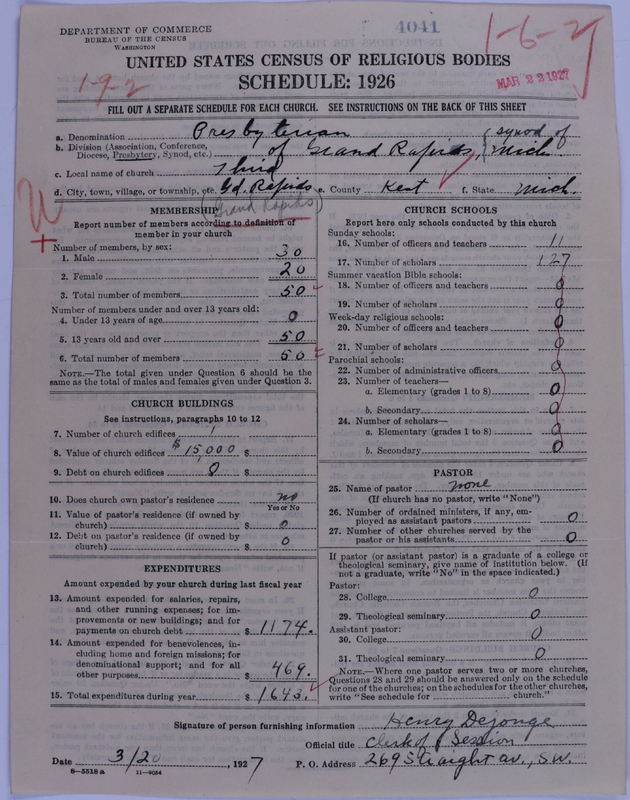 DEPARTMENT OF COMMERCE
BUREAU OF THE CENSUS
WASHINGTON
4041
1-6-2
1-9-2
MAR 22 1927
UNITED STATES CENSUS OF RELIGIOUS BODIES
SCHEDULE: 1926
FILL OUT A SEPARATE SCHEDULE FOR EACH CHURCH. SEE INSTRUCTIONS ON THE BACK OF THIS SHEET
a. Denomination Presbyterian
b. Division (Association, Conference, Diocese, Presbytery, Synod, etc.) of Grand Rapids, (Synod of Mich.
c. Local name of church Third
d. City, town, village, or township, etc. Gd. Rapids e. County Kent f. State Mich.
(Grand Rapids)
MEMBERSHIP
Report number of members according to definition of member in your church
Number of members, by sex:
1. Male 30
2. Female 20
3. Total number of members 50
Number of members under and over 13 years old:
4. Under 13 years of age 0
5. 13 years old and over 50
6. Total number of members 50
NOTE.—The total given under Question 6 should be the same as the total of males and females given under Question 3.
CHURCH BUILDINGS
See instructions, paragraphs 10 to 12
7. Number of church edifices 1
8. Value of church edifices $15,000 $
9. Debt on church edifices 0 $
10. Does church own pastor's residence no
Yes or No
11. Value of pastor's residence (if owned by church) $ 0
12. Debt on pastor's residence (if owned by church) $ 0
EXPENDITURES
Amount expended by your church during last fiscal year
13. Amount expended for salaries, repairs, and other running expenses; for improvements or new buildings; and for payments on church debt $ 1174.
14. Amount expended for benevolences, including home and foreign missions; for denominational support; and for all other purposes $ 469.
15. Total expenditures during year $ 1643.
CHURCH SCHOOLS
Report here only schools conducted by this church
Sunday schools:
16. Number of officers and teachers 11
17. Number of scholars 127
Summer vacation Bible schools:
18. Number of officers and teachers 0
19. Number of scholars 0
Week-day religious schools:
20. Number of officers and teachers 0
21. Number of scholars 0
Parochial schools:
22. Number of administrative officers 0
23. Number of teachers—
a. Elementary (grades 1 to 8) 0
b. Secondary 0
24. Number of scholars—
a. Elementary (grades 1 to 8) 0
b. Secondary 0
PASTOR
25. Name of pastor none
(If church has no pastor, write "None")
26. Number of ordained ministers, if any, employed as assistant pastors 0
27. Number of other churches served by the pastor or his assistants 0
If pastor (or assistant pastor) is a graduate of a college or theological seminary, give name of institution below. (If not a graduate, write "No" in the space indicated.)
Pastor:
28. College 0
29. Theological seminary 0
Assistant pastor:
30. College 0
31. Theological seminary 0
NOTE.—Where one pastor serves two or more churches, Questions 28 and 29 should be answered only on the schedule for one of the churches; on the schedules for the other churches, write "See schedule for church."
Signature of person furnishing information Henry Dejonge
Official title Clerk of Session
Date 3/20, 1927 P. O. Address 269 Straight av., S.W.
8-5518 a 11-9054